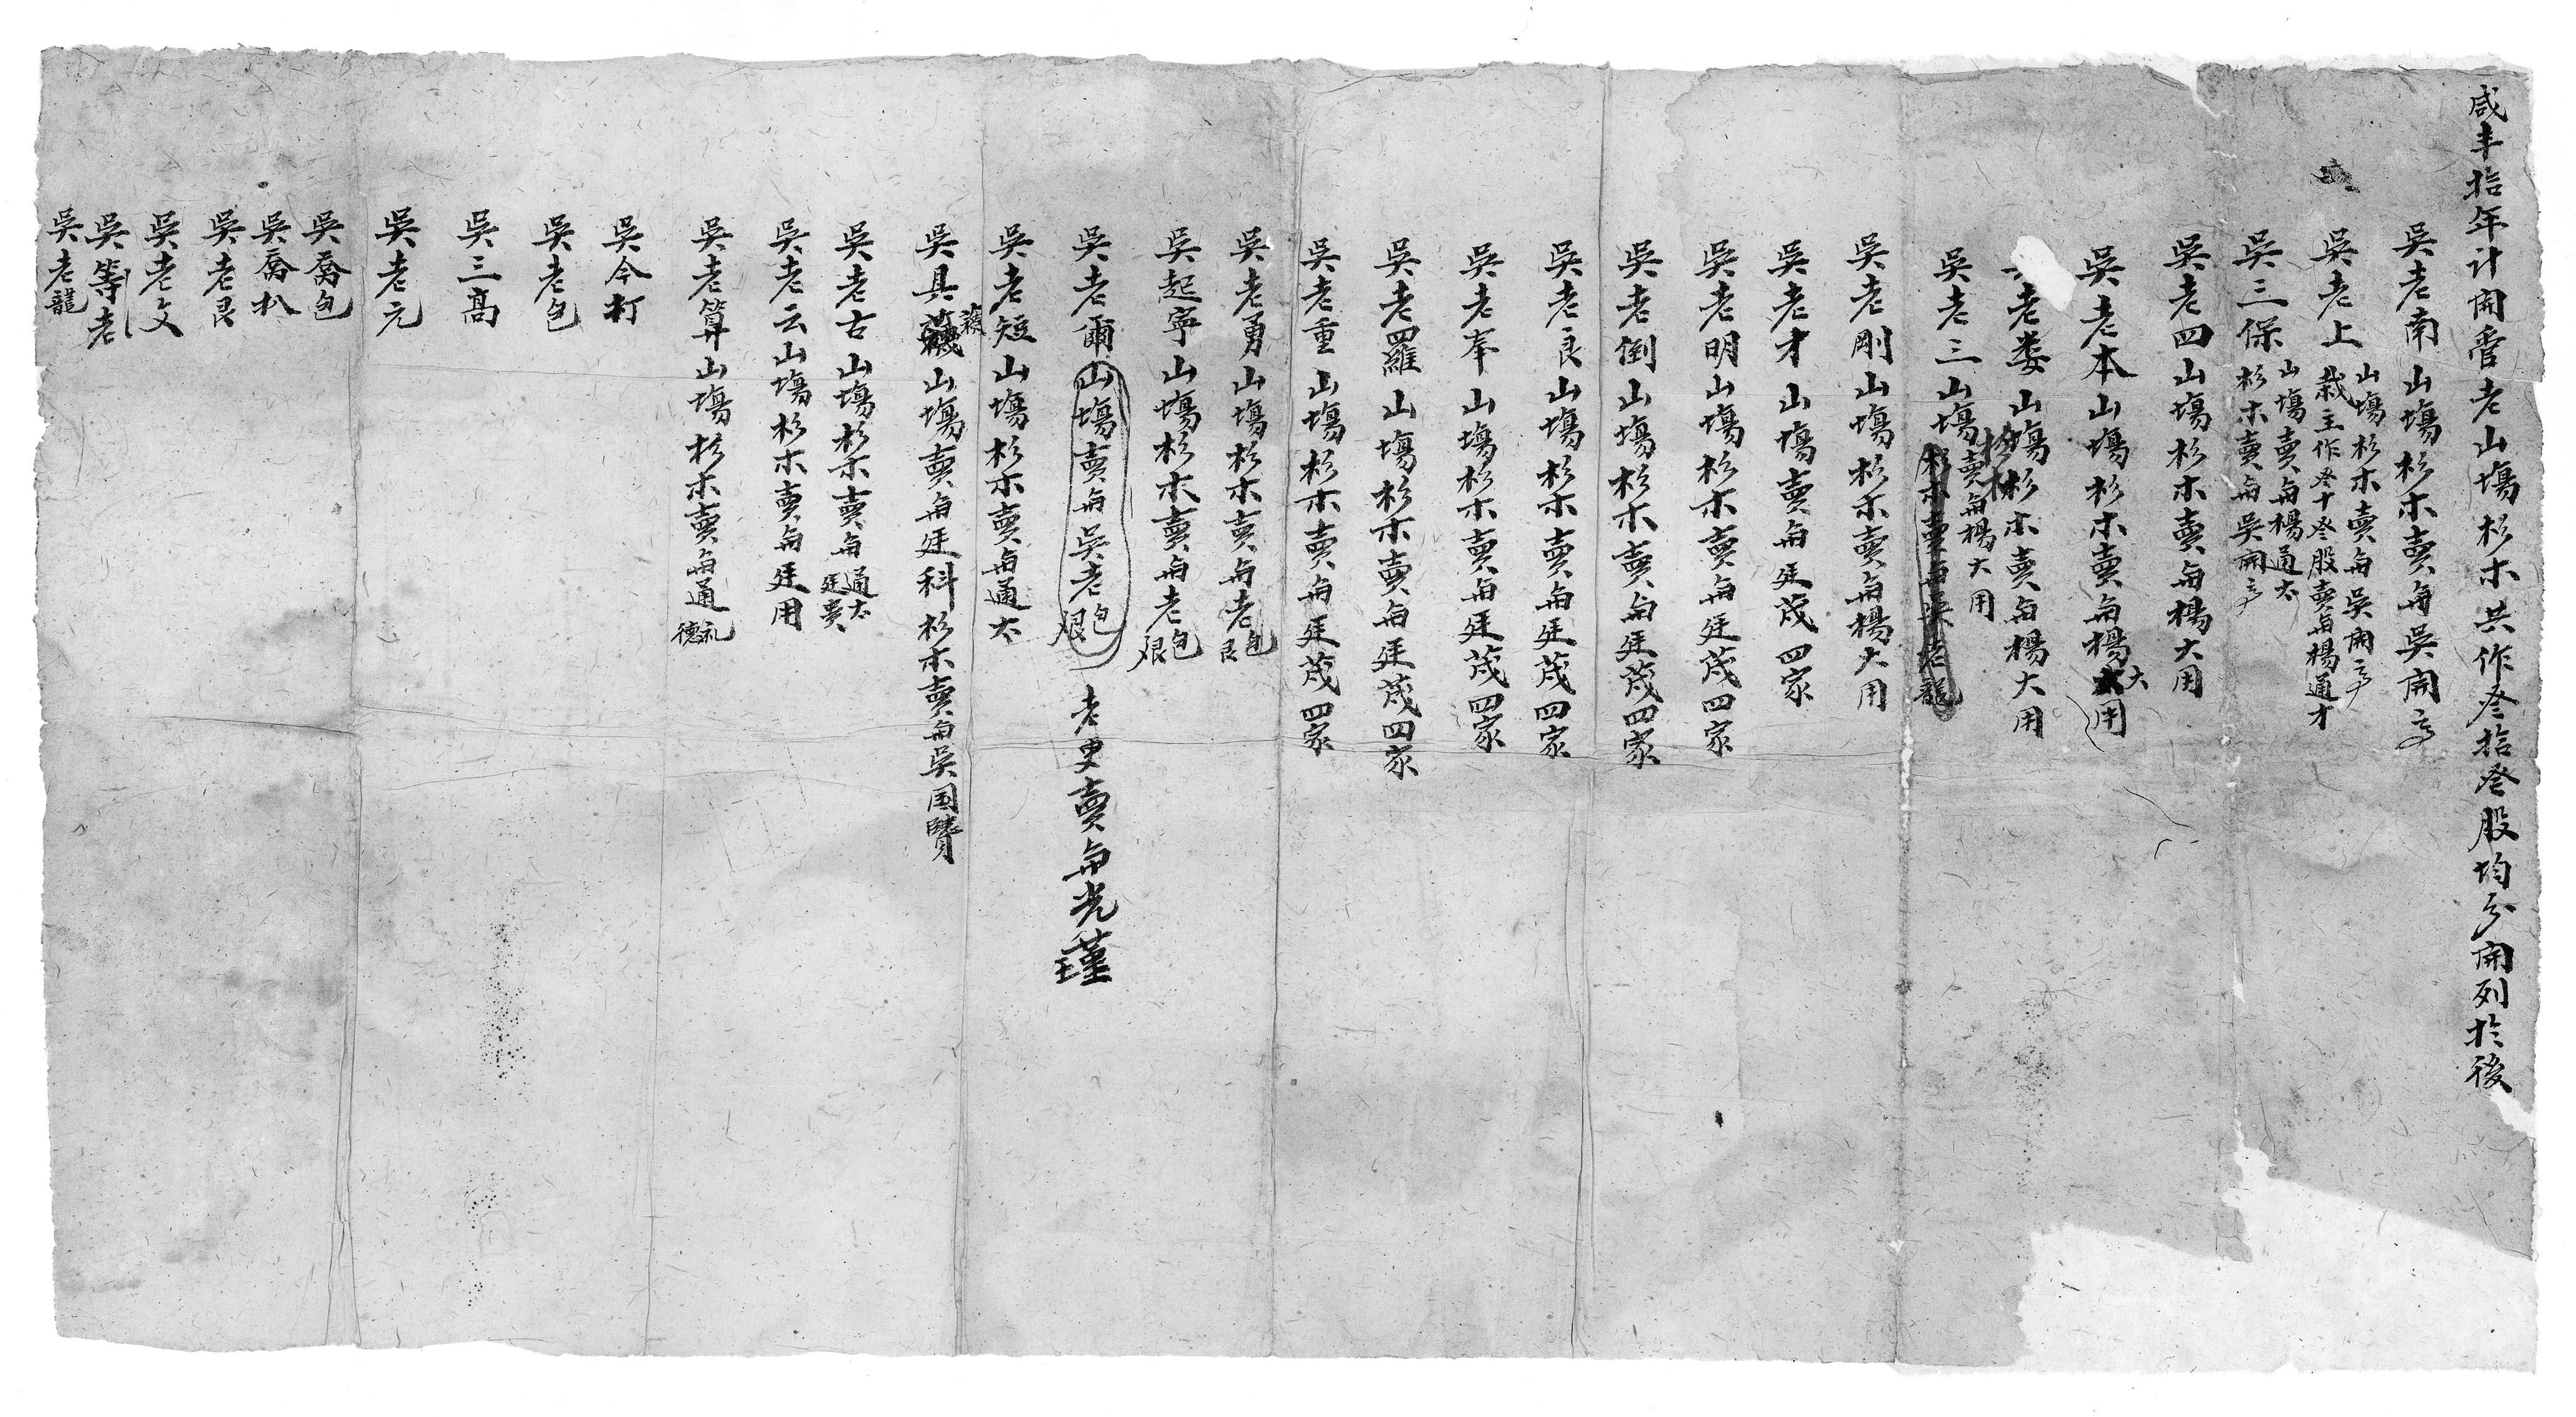 咸丰拾年计開香老山塲杉木共作叄拾叄股均分開列於後
吳老南山塲杉木賣與吳開亨
吳老上
山塲杉木賣與吳開亨
栽主作叄十叄股賣與楊通才
吳三保
山塲賣與楊通太
杉木賣與吳開亨
吳老四山塲杉木賣與楊大用
吳老本山塲杉木賣與楊大用
老娄山塲杉木賣與楊大用
吳老三山塲賣與楊大用
杉木賣與吳老龍
吳老剛山塲杉木賣與楊大用
吳老才山塲賣與廷茂四家
吳老明山塲杉木賣與廷茂四家
吳老倒山塲杉木賣與廷茂四家
吳老良山塲杉木賣與廷茂四家
吳老奉山塲杉木賣與廷茂四家
吳老羅山塲杉木賣與廷茂四家
吳老重山塲杉木賣與廷茂四家
吳老勇山塲杉木賣與老包艮
吳起寧山塲杉木賣與老包艰
吳老爾山塲賣與吳老包艰 老叟賣與光瑾
吳老短山塲杉木賣與通太
吳具山塲賣與廷科杉木賣與吳国賢
吳老古山塲杉木賣與通太廷贵
吳老云山塲杉木賣與廷用
吳老算山塲杉木賣與通礼德
吳今打
吳老包
吳三髙
吳老元
吳喬包
吳喬扒
吳老艮
吳老文
吳等老
吳老龍